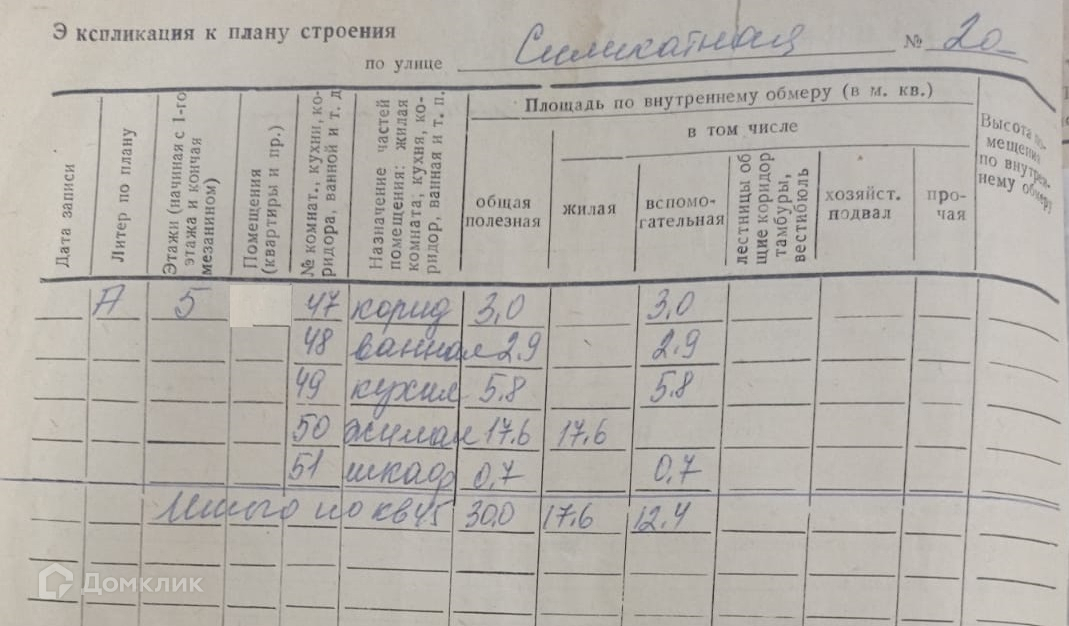 Экспликация к плану строения
по улице Силикатная № 2а
Дата записи
Литер по плану
Этажи (начиная с 1-го
этажа и кончая
мезанином)
Помещения
(квартиры и пр.)
№ комнат., кухни, ко-
ридора, ванной и т. д
Назначение частей
помещения: жилая
комната; кухня, ко-
ридор, ванная и т. п.
Площадь по внутреннему обмеру (в м. кв.)
в том числе
общая
полезная
жилая
вспомо-
гательная
лестницы об
щие коридор
тамбуры,
вестибюль
хозяйст.
подвал
про-
чая
Высота по-
мещения
по внутрен-
нему обмеру
А 5 47 корид 3,0 3,0
48 ванная 2.9 2.9
49 кухня 5.8 5.8
50 жилая 17.6 17.6
51 шкаф 0,7 0,7
Итого по кв 45 30.0 17.6 12.4
Домклик